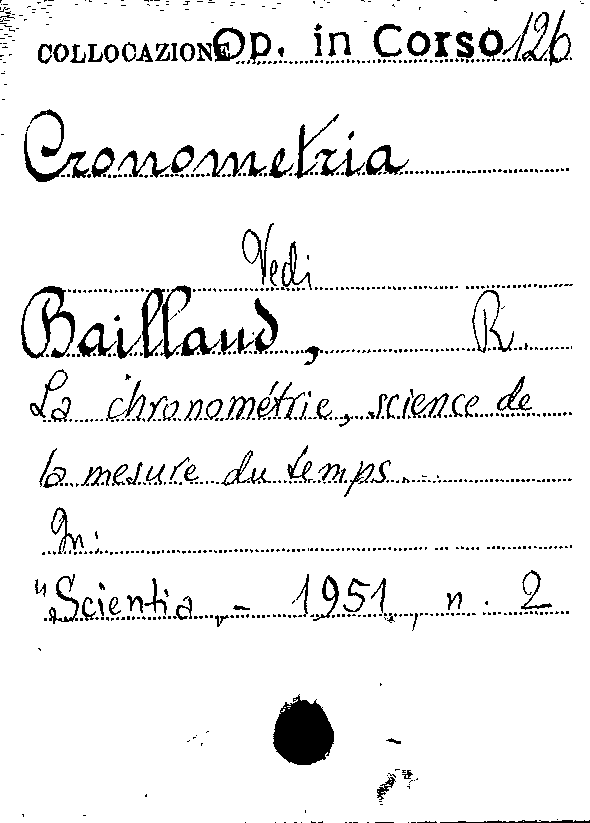 COLLOCAZIONE Op. in Corso 126
Cronometria
Vedi
Baillaud, R.
La chronométrie, science de
la mesure du temps...
In:
"Scientia„ - 1951, n. 2